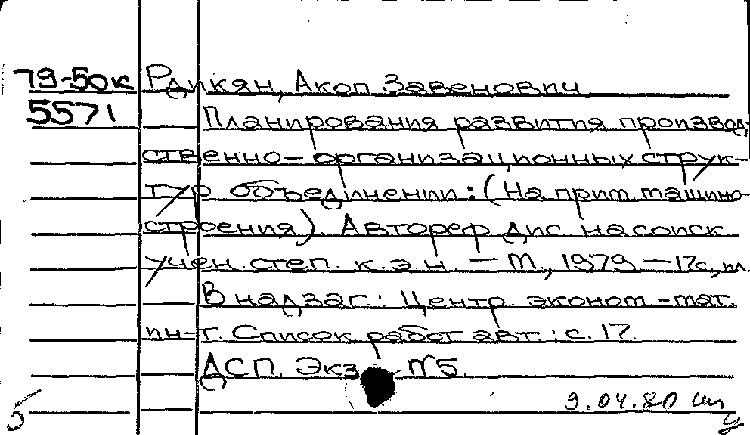 79-50к Рдикян, Акоп Завенович
5571 Планирования развития производ-
ственно-организационных струк-
тур объединении: (На прим. машино-
строения). Автореф. дис. на соиск.
учен. степ. к.э.н. — М., 1979 — 17с., ил.
В надзаг.: Центр. эконом.-мат.
ин-т. Список работ авт.: с. 17.
ДСП. Экз. №5.
9.04.80